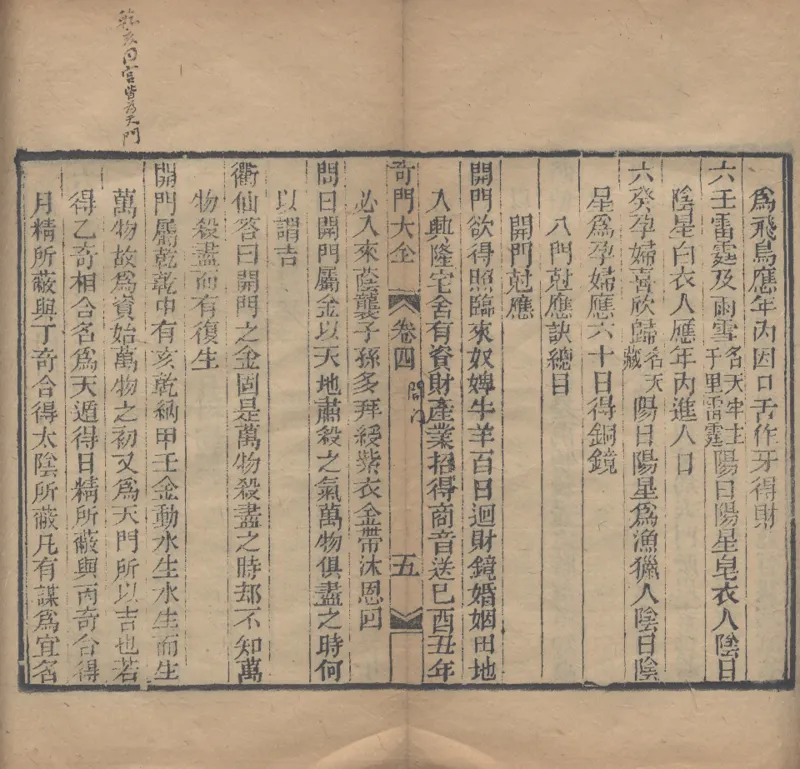 為飛鳥應年內因口舌作牙得財
六壬雷霆及雨雪名天牢主千里雷霆陽日陽星皂衣人陰日
陰星白衣人應年內進人口
六癸孕婦喜欣歸名天藏陽日陽星為漁獵人陰日陰
星為孕婦應六十日得銅鏡
八門尅應訣總目
開門尅應
開門欲得照臨來奴婢牛羊百日迴財鏡婚姻田地
人興隆宅舍有資財產業招得商音送巳酉丑年
奇門大全 卷四 開門 五
必入來蔭襲子孫多拜綬紫衣金帶沐恩回
問曰開門屬金以天地肅殺之氣萬物俱盡之時何
以謂吉
衢仙答曰開門之金固是萬物殺盡之時却不知萬
物殺盡而有復生
開門屬乾乾中有亥乾納甲壬金動水生水生而生
萬物故為資始萬物之初又為天門所以吉也若
得乙奇相合名為天遁得日精所蔽與丙奇合得
月精所蔽與丁奇合得太陰所蔽凡有謀為宜名
乾亥同宮皆為天門